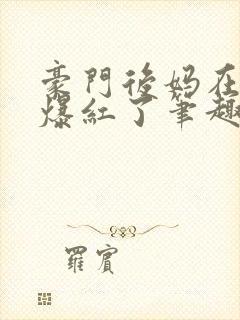 豪門後媽在
爆紅了筆趣
羅賓